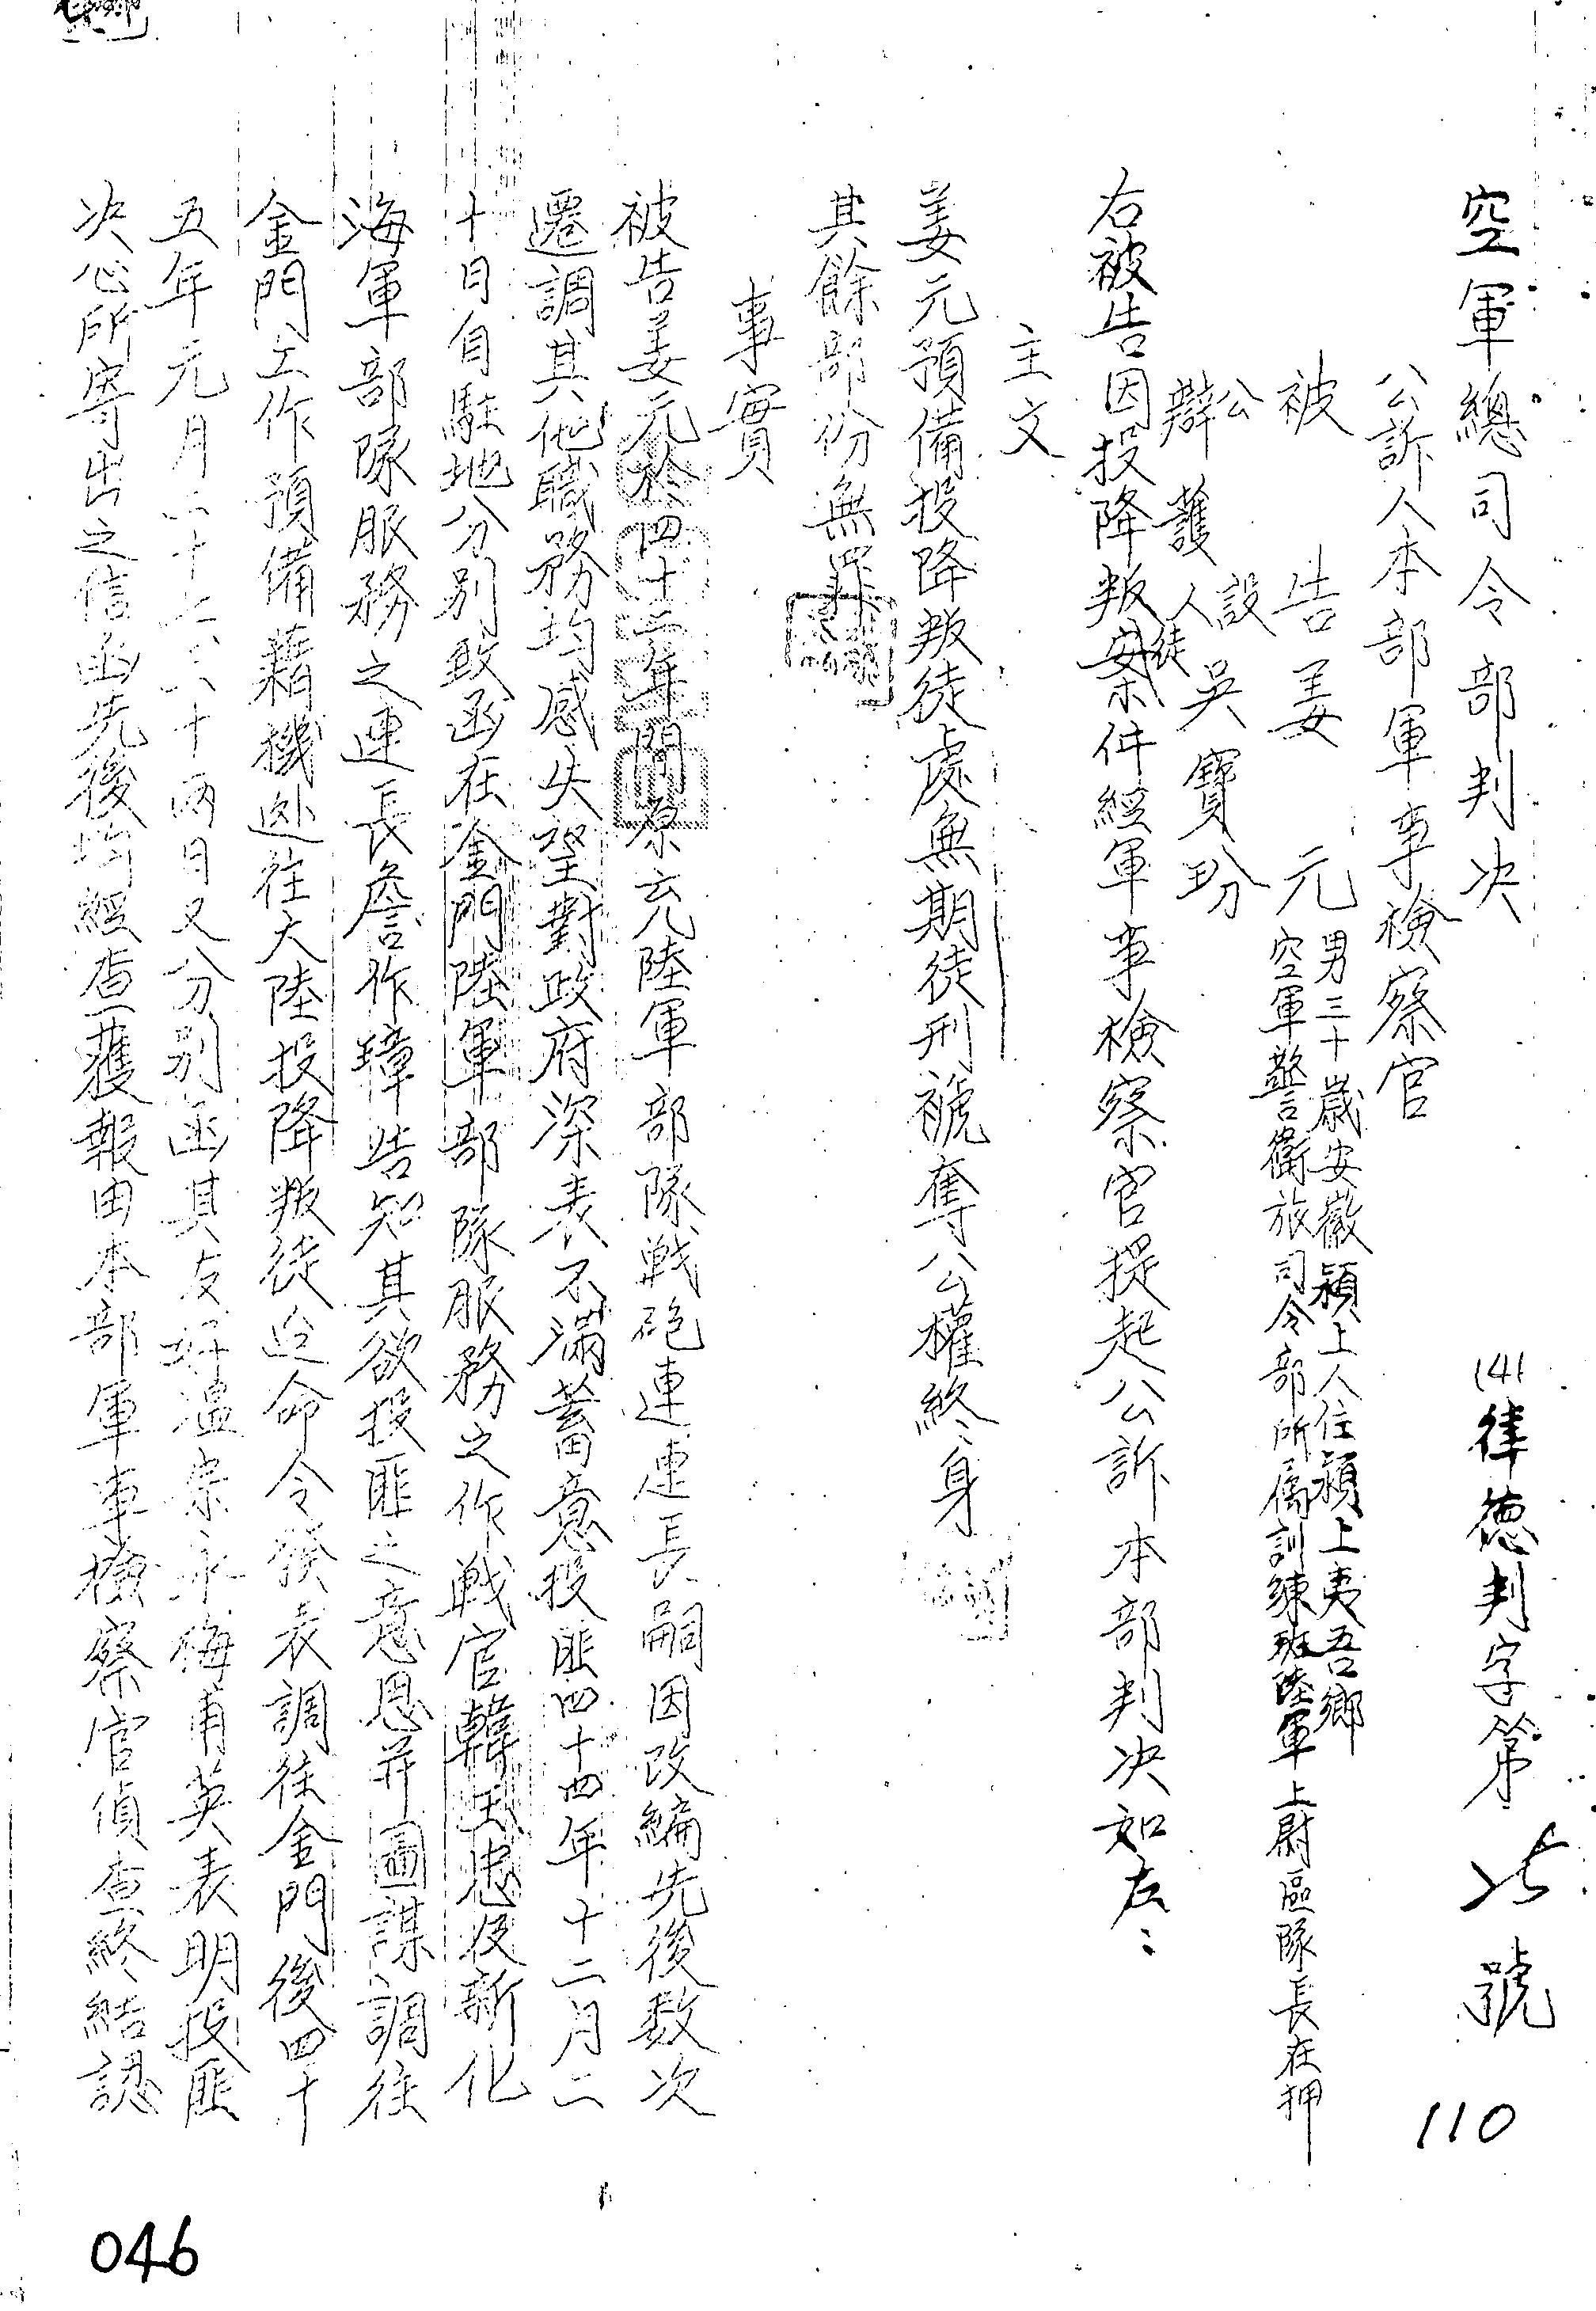 空軍總司令部判决
(41律德判字第 號
110
公訴人本部軍事檢察官
被告姜元 男三十歲安徽潁上人住潁上夷吾鄉
空軍警衛旅司令部所屬訓練班陸軍上尉區隊長在押
公設
辯護人吳寶玢
右被告因投降叛徒案件經軍事檢察官提起公訴本部判决如左：
主文
姜元預備投降叛徒處無期徒刑褫奪公權終身
其餘部份無罪
事實
被告姜元於四十二年間原充陸軍部隊戰砲連連長嗣因改編先後数次
遷調其他職務均感失望對政府深表不滿蓄意投匪四十四年十二月二
十日自駐地分别致函在金門陸軍部隊服務之作戰官韓玉忠及新化
海軍部隊服務之連長詹作璋告知其欲投匪之意思并圖謀調往
金門工作預備藉機逃往大陸投降叛徒迨命令發表調往金門後四十
五年元月二十六八十兩日又分别函其友好溫崇永梅甫英表明投匪
决心所寄出之信函先後均經查獲報由本部軍事檢察官偵查終結認
046